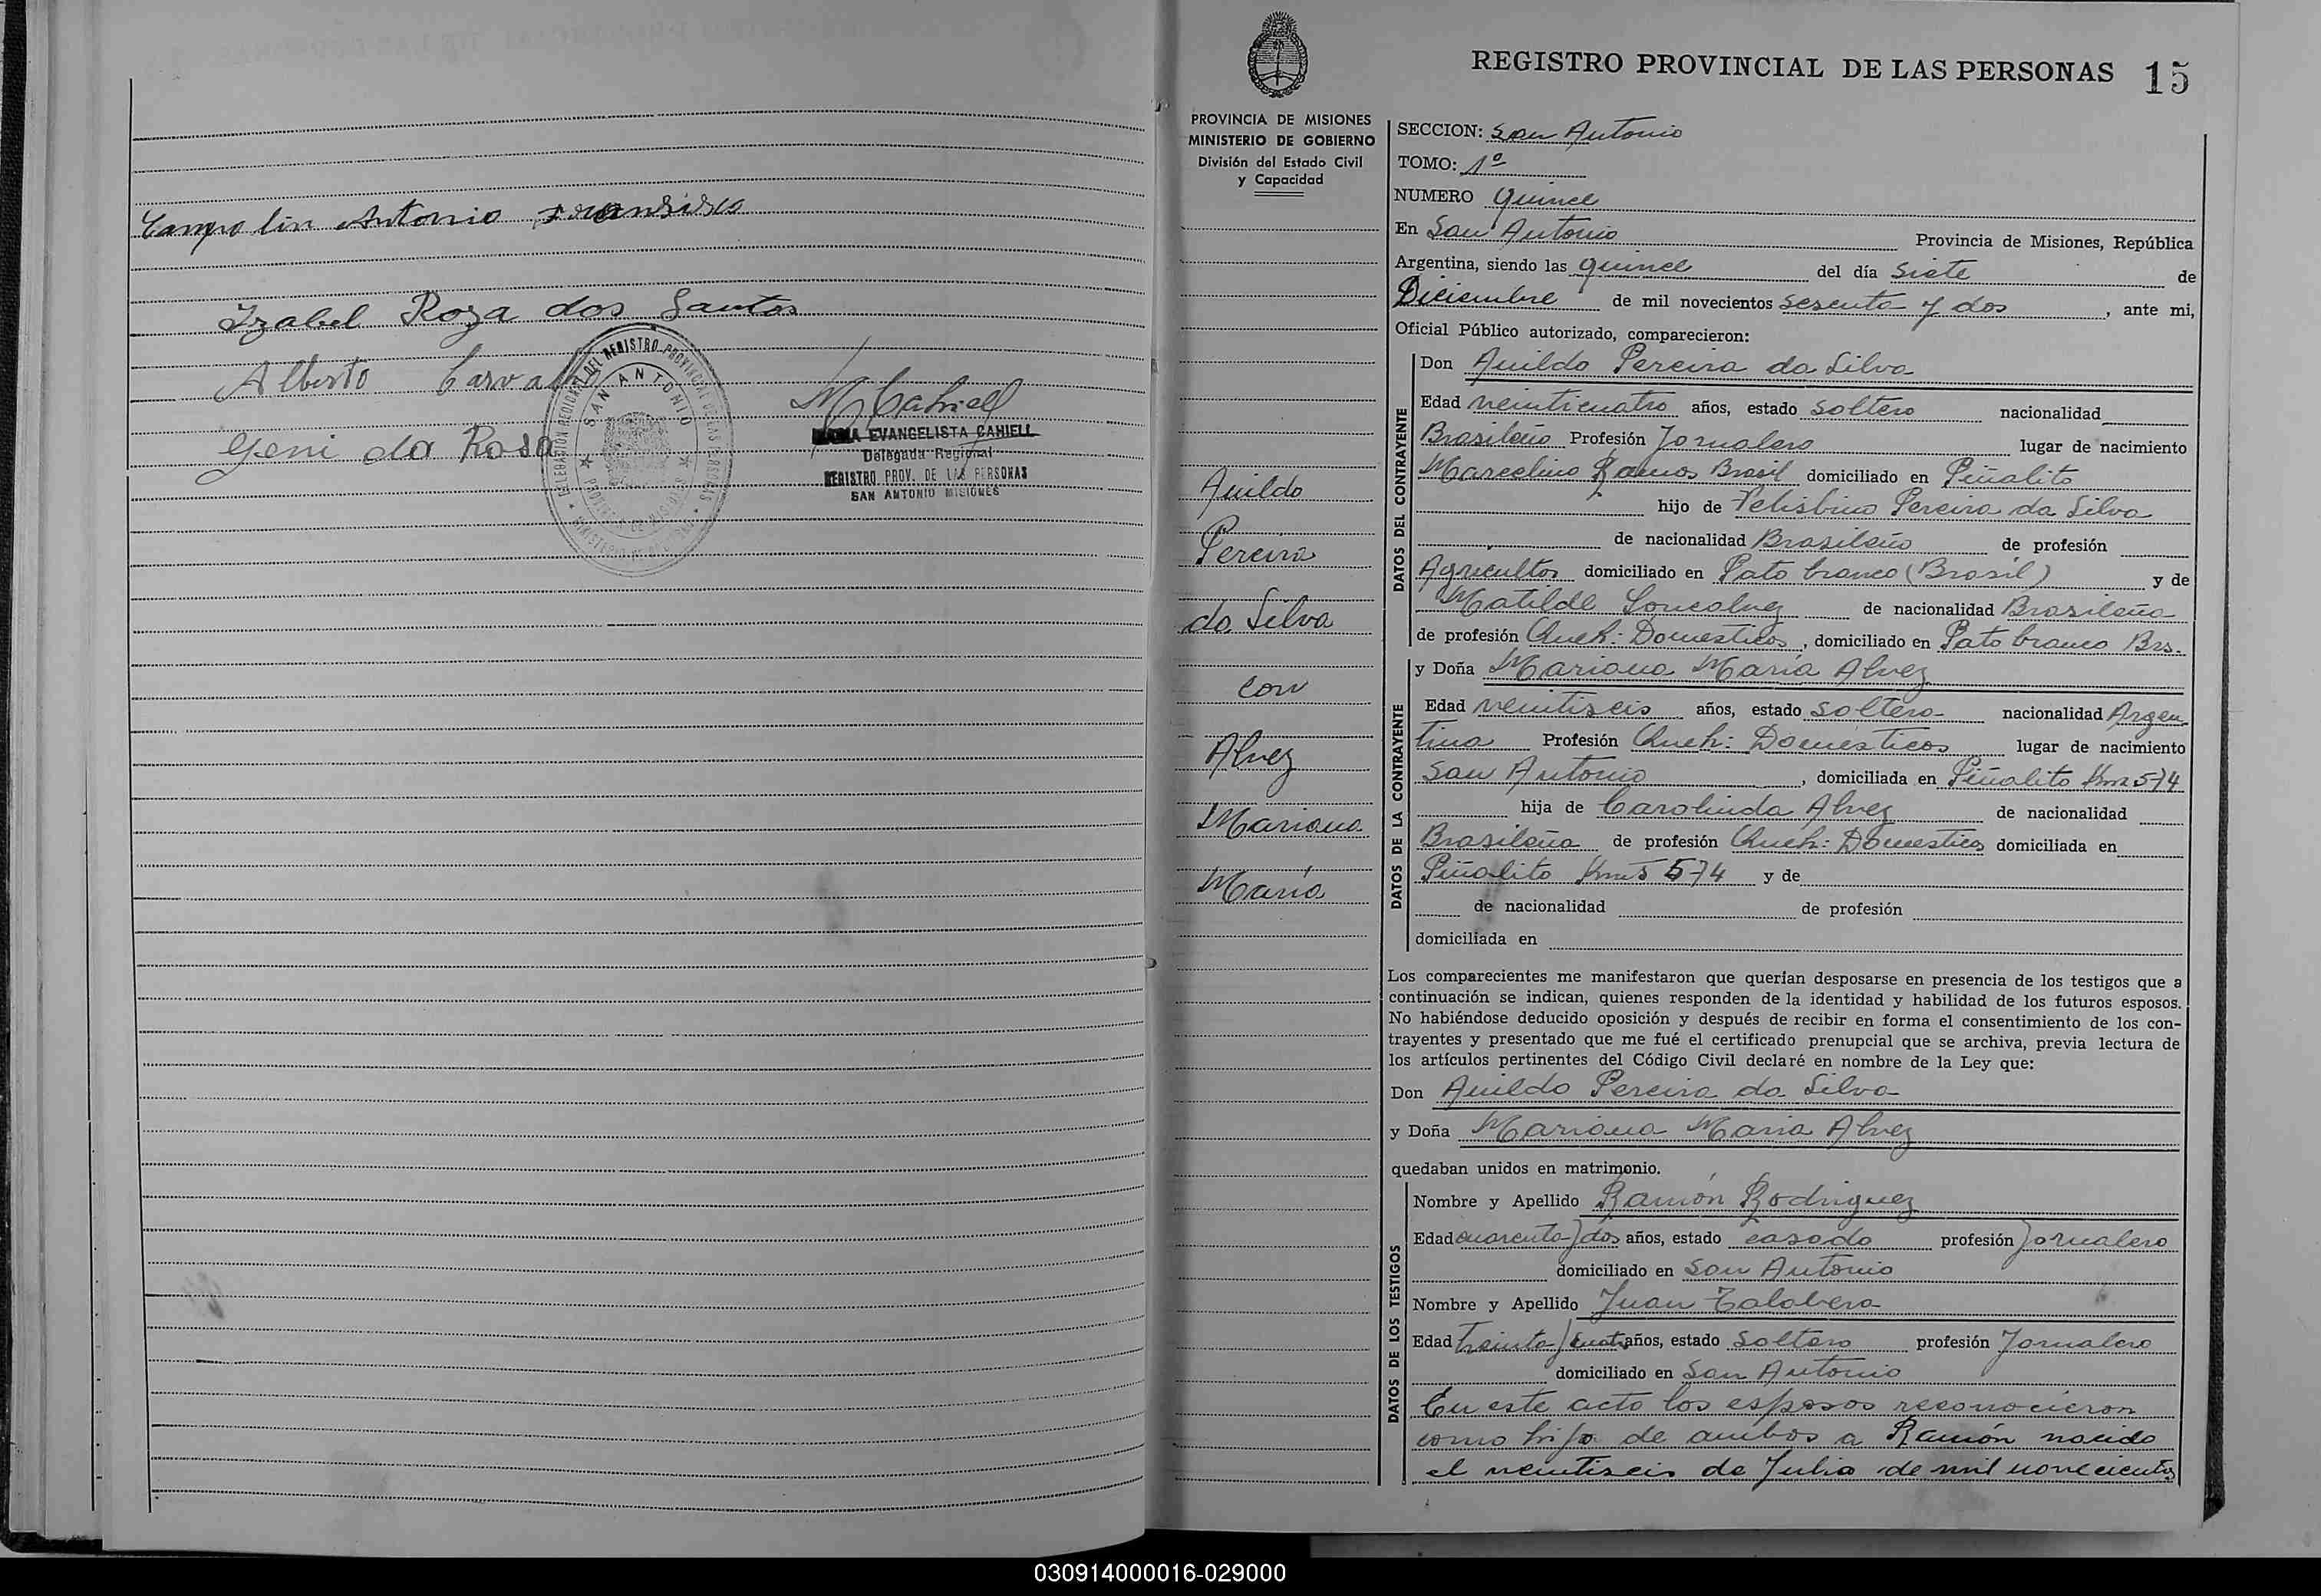 Campo lin Antonio
Izabel Roza dos Santos
Alberto
Geni da Rosa
DELEGACION REGIONAL DEL REGISTRO PROVINCIAL DE LAS PERSONAS
SAN ANTONIO
M Cahiell
MARIA EVANGELISTA CAHIELL
Delegada Regional
REGISTRO PROV. DE LAS PERSONAS
SAN ANTONIO MISIONES
REGISTRO PROVINCIAL DE LAS PERSONAS 15
PROVINCIA DE MISIONES
MINISTERIO DE GOBIERNO
División del Estado Civil
y Capacidad
Anildo
Pereira
da Silva
con
Alvez
Mariana
María
SECCION: San Antonio
TOMO: 1º
NUMERO Quince
En San Antonio Provincia de Misiones, República
Argentina, siendo las quince del día Siete de
Diciembre de mil novecientos sesenta y dos, ante mi,
Oficial Público autorizado, comparecieron:
DATOS DEL CONTRAYENTE
Don Anildo Pereira da Silva
Edad veinticuatro años, estado soltero nacionalidad
Brasileño Profesión Jornalero lugar de nacimiento
Marcelino Ramos Brasil domiciliado en Piñalito
hijo de Pereira da Silva
de nacionalidad Brasileño de profesión
Agricultor domiciliado en Pato branco (Brasil) y de
Matilde de nacionalidad Brasileña
de profesión Queh: Domesticos, domiciliado en Pato branco Brs.
DATOS DE LA CONTRAYENTE
y Doña Mariana María Alvez
Edad veintiseis años, estado soltera nacionalidad Argen
tina Profesión Queh: Domésticos lugar de nacimiento
San Antonio, domiciliada en Piñalito Km 574
hija de Carolinda Alvez de nacionalidad
Brasileña de profesión Queh: Domesticos domiciliada en
Piñalito Kms 574 y de
de nacionalidad de profesión
domiciliada en
Los comparecientes me manifestaron que querían desposarse en presencia de los testigos que a
continuación se indican, quienes responden de la identidad y habilidad de los futuros esposos.
No habiéndose deducido oposición y después de recibir en forma el consentimiento de los con-
trayentes y presentado que me fué el certificado prenupcial que se archiva, previa lectura de
los artículos pertinentes del Código Civil declaré en nombre de la Ley que:
Don Anildo Pereira da Silva
y Doña Mariana Maria Alvez
quedaban unidos en matrimonio.
DATOS DE LOS TESTIGOS
Nombre y Apellido Ramón Rodriguez
Edad cuarenta y dos años, estado casado profesión Jornalero
domiciliado en San Antonio
Nombre y Apellido Juan Talabera
Edad treinta y cuatro años, estado soltero profesión Jornalero
domiciliado en San Antonio
En este acto los esposos reconocieron
como hijo de ambos a Ramón nacido
el veintiseis de Julio de mil novecientos
030914000016-029000